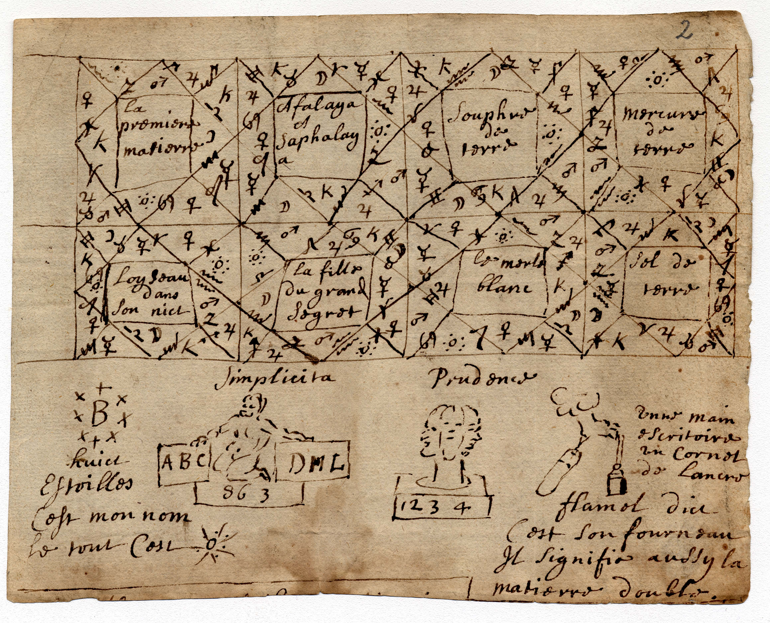 2
la
premiere
matierre
Afalaya
et
Saphalay
a
Souphre
de
terre
mercure
de
terre
Loyseau
dans
son nict
la fille
du grand
Segret
le merle
blanc
Sel de
terre
Simplicita
Prudence
B
huict
Estoilles
Cest mon nom
le tout Cest
A B C
D M L
8 6 3
1 2 3 4
vnne main
escritoire
vn Cornet
de Lancre
flamel dict
Cest son fourneau
Il signifie aussy la
matierre double.